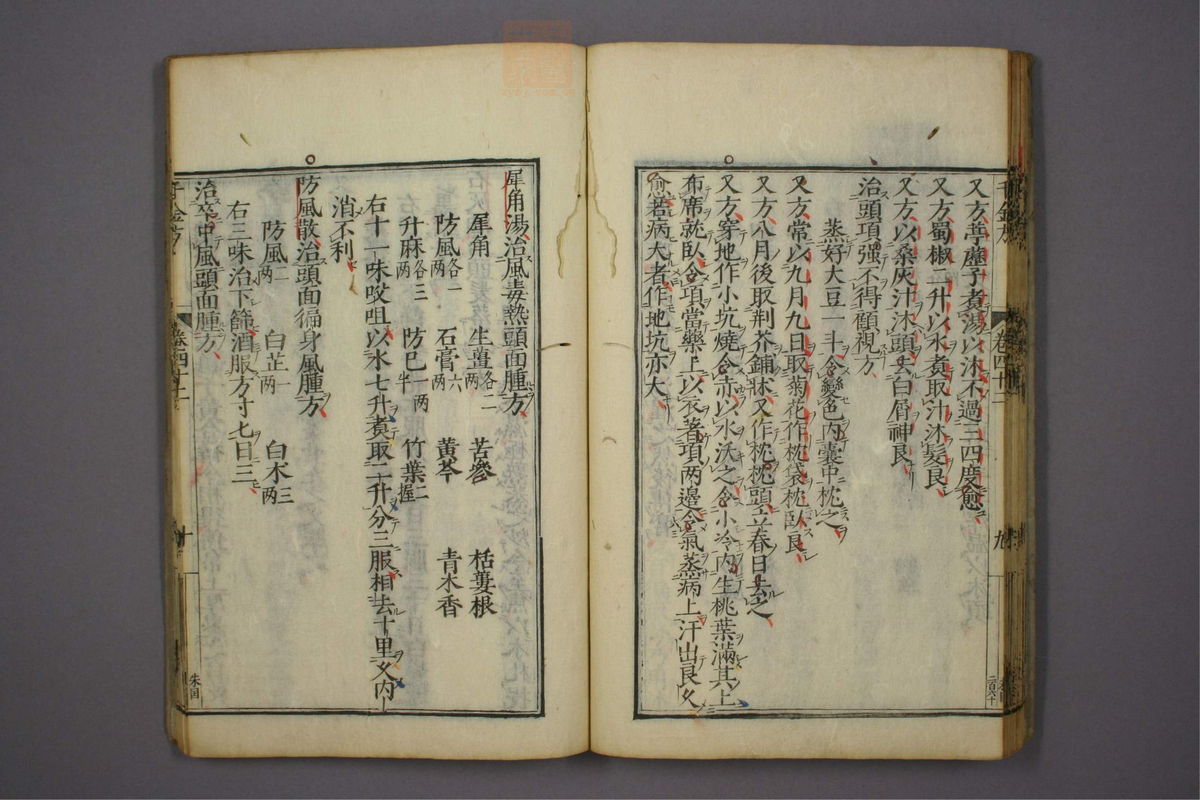 又方葶藶子煮湯以沐不過三四度愈
又方蜀椒二升以水煮取汁沐髮良
又方以桑灰汁沐頭去白屑神良
治頭項强不得顧視方
蒸好大豆一斗令變色內囊中枕之
又方常以九月九日取菊花作枕袋枕臥良
又方八月後取荆芥鋪牀又作枕枕頭立春日去之
又方穿地作小坑燒令赤以水沃之令小冷內生桃葉滿其上
布席就臥令項當藥上以衣著項兩邊令氣蒸病上汗出良久
愈若病大者作地坑亦大
千金方
卷四十二
九
犀角湯治風毒熱頭面腫方
犀角 生薑各二兩 苦參 栝蔞根
防風各二兩 石膏六兩 黃芩 青木香
升麻各三兩 防巳一兩半 竹葉二握
右十一味㕮咀以水七升煮取二升分三服相去十里又內
消不利
防風散治頭面徧身風腫方
防風二兩 白芷一兩 白朮三兩
右三味治下篩酒服方寸匕日三
治卒中風頭面腫方
千金方
卷四十二
十
朱国